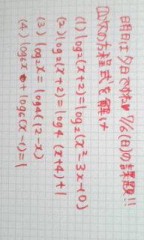 明日は今日です!! 7/6(日)の課題!!
☐次の方程式を解け
(1) log₂(x+2)=log₂(x²-3x-10)
(2) log₂(x+2)=log₄(x+4)+1
(3) log₂x=log₄(12-x)
(4) log₆x+log₆(x-1)=1